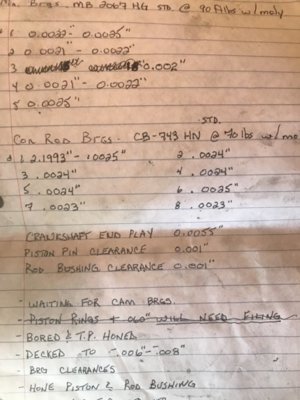 Main Brgs. MB 2067 HG STD. @ 90 ft lbs w/moly
# 1 0.0022" - 0.0025"
2 0.0021" - 0.0022"
3 0.002"
4 0.0021" - 0.0022"
5 0.0025"
STD.
Con Rod Brgs. CB-743 HN @ 70 lbs w/mo
# 1 2.1993" - .0025"
2 .0024"
3 .0024"
4 .0024"
5 .0024"
6 .0025"
7 .0023"
8 .0023"
CRANKSHAFT END PLAY 0.0055"
PISTON PIN CLEARANCE 0.001"
ROD BUSHING CLEARANCE 0.001"
- WAITING FOR CAM BRGS.
- PISTON RINGS + .060" WILL NEED FILING
- BORED & T.P. HONED
- DECKED TO -.006"-.008"
- BRG CLEARANCES
- HONE PISTON & ROD BUSHING